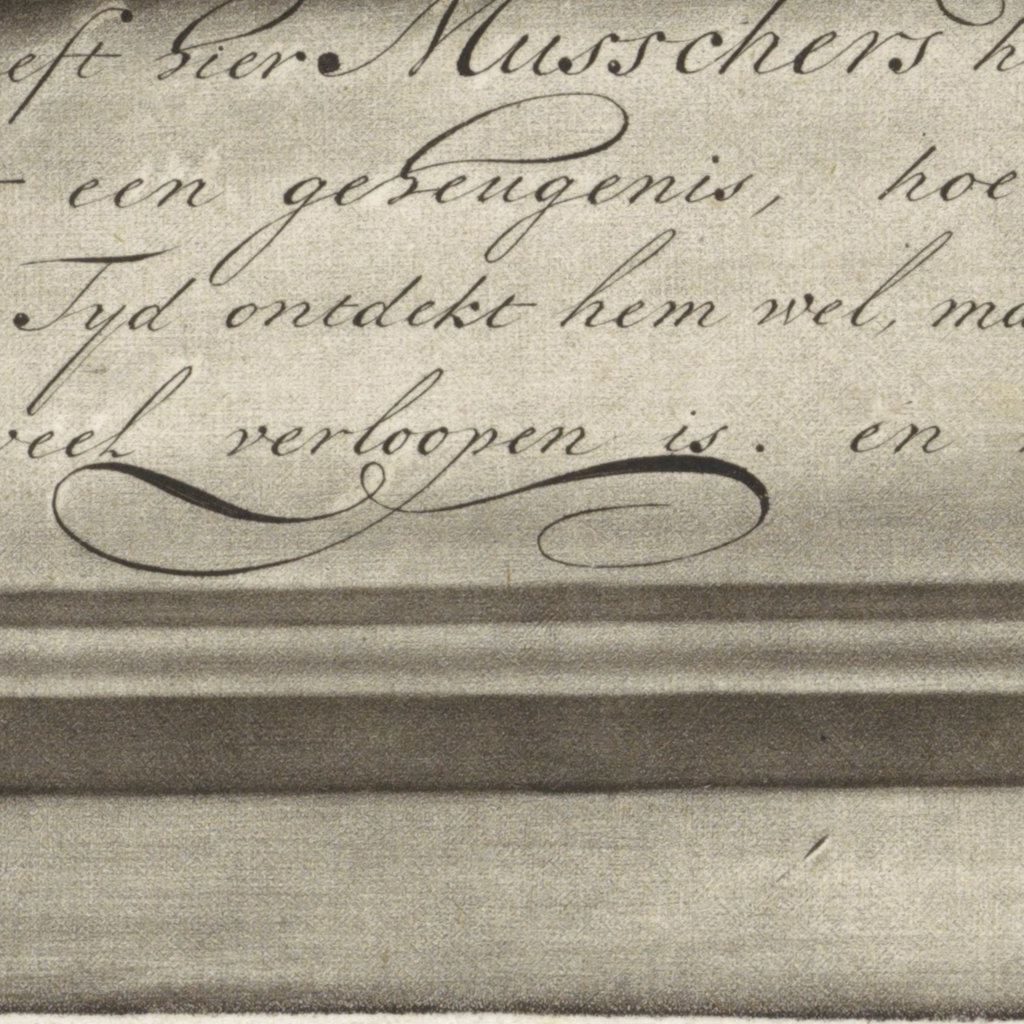 eft hier Musschers h
een geheugenis, hoe
Tyd ontdekt hem wel, ma
veel verloopen is. en